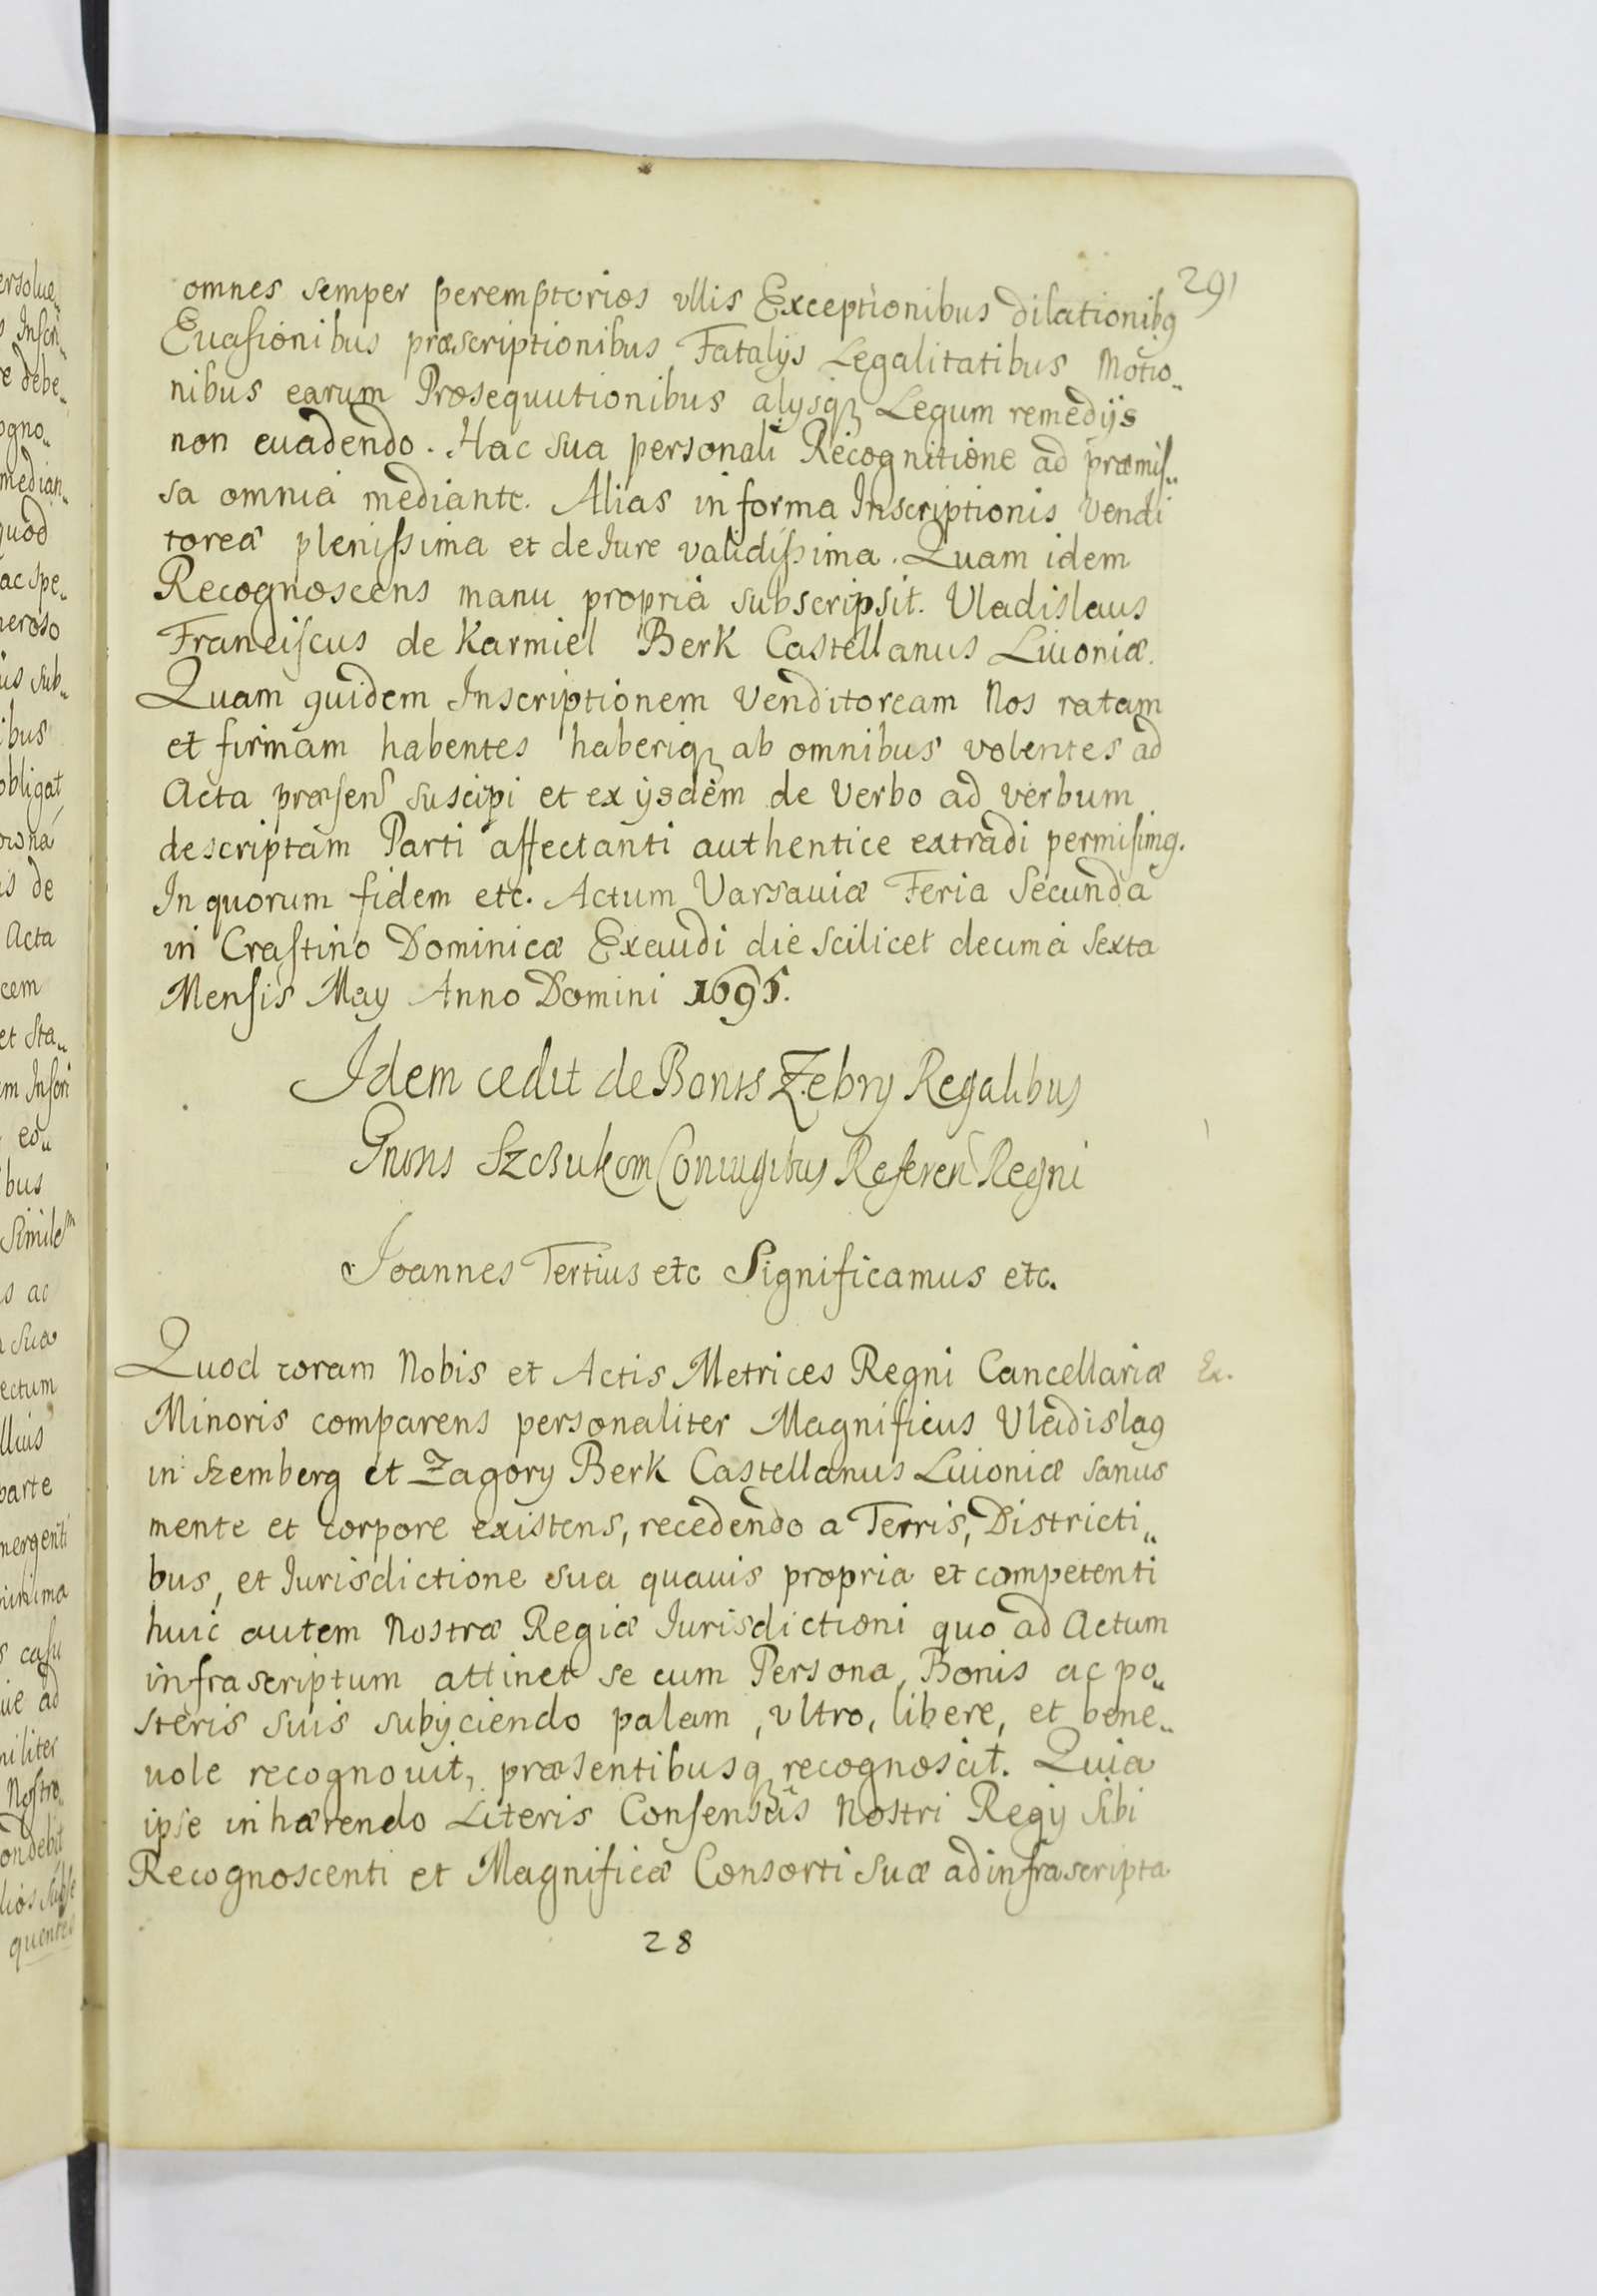 291
omnes semper peremptorios vllis Exceptionibus dilationibq
Euasionibus præscriptionibus Fatalijs Legalitatibus Motio„
nibus earum Prosequutionibus alysqz Legum remedijs
non euadendo. Hac sua personali Recognitione ad præmis„
sa omnia mediante. Alias in forma Inscriptionis Vendi
torea plenissima et de Iure validissima. Quam idem
Recognoscens manu propria subscripsit. Vladislaus
Franciscus de Karmiel Berk Castellanus Liuoniæ.
Quam quidem Inscriptionem Venditoream Nos ratam
et firmam habentes haberiqz ab omnibus volentes ad
Acta præsen suscipi et ex ijsdem de Verbo ad verbum
descriptam Parti affectanti authentice extradi permisimq.
In quorum fidem etc. Actum Varsauiæ Feria Secunda
in Crastino Dominicæ Exaudi die scilicet decima sexta
Mensis May Anno Domini 1695.
Idem cedit de Bonis Zebry Regalibus
Gnosis Szczukom Coniugibus Referen Regni
Ioannes Tertius etc Significamus etc.
Quod coram Nobis et Actis Metrices Regni Cancellariæ Ex.
Minoris comparens personaliter Magnificus Vladislaq
in Szemberg et Zagory Berk Castellanus Liuoniæ sanus
mente et corpore existens, recedendo a Terris, Districti„
bus, et Iurisdictione sua quauis propria et competenti
huic autem Nostræ Regiæ Iurisdictioni quo ad Actum
infrascriptum attinet se cum Persona, Bonis ac po„
steris suis subijciendo palam, vltro, libere, et bene„
uole recognouit, præsentibusqz recognoscit. Quia
ipse inhærendo Literis Consensûs Nostri Regij Sibi
Recognoscenti et Magnificæ Consorti suæ ad infrascripta
28